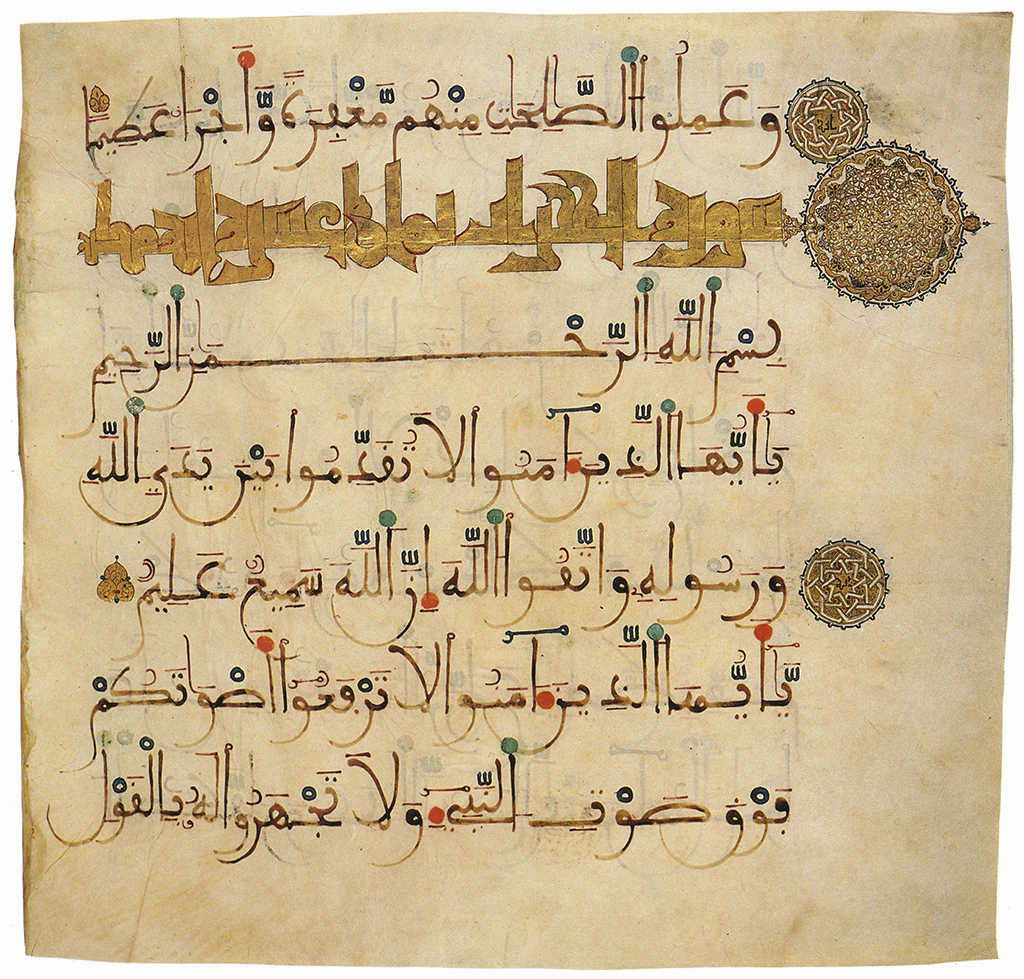 وَعَمِلُوا الصَّلِحَتِ مِنْهُم مَّغْفِرَةً وَّأَجْرًا عَظِيمًا
سورة الحجرات
بِسْمِ اللَّهِ الرَّحْمَنِ الرَّحِيمِ
يَأَيُّهَا الَّذِينَ ءَامَنُوا لَا تُقَدِّمُوا بَيْنَ يَدَيِ اللَّهِ
وَرَسُولِهِ وَاتَّقُوا اللَّهَ إِنَّ اللَّهَ سَمِيعٌ عَلِيمٌ
يَأَيُّهَا الَّذِينَ ءَامَنُوا لَا تَرْفَعُوا أَصْوَاتَكُمْ
فَوْقَ صَوْتِ النَّبِيءِ وَلَا تَجْهَرُوا لَهُ بِالْقَوْلِ